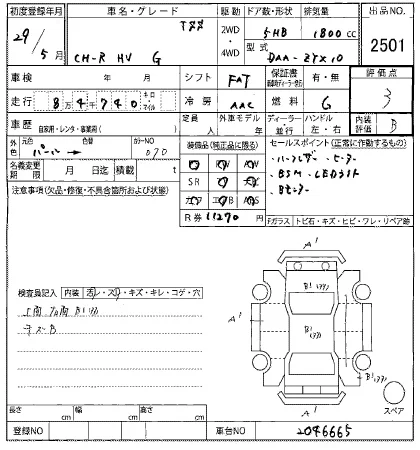 初度登録年月
車名・グレード
駆動
ドア数・形状
排気量
出品NO.
29年5月
トヨタ
CH-R HV G
2WD
・
4WD
5HB
1800 CC
型式
DAA-ZYX10
2501
車検 年 月
シフト FAT
保証書
有・無
評価点
走行 8万4千740 キロ・マイル
冷房 AAC
燃料 G
3
車歴 自家用・レンタ・事業用( )
定員 人
外車モデル 年
ディーラー・並行
ハンドル 左・右
内装評価 B
外色
元色 パール
色替
カラーNO 070
装備品(純正品に限る)
セールスポイント(正常に作動するもの)
名義変更期限 月 日迄
積載 t
SR
・ハーフレザー・ヒーター
・BSM・LEDライト
・Bモニター
注意事項(欠品・修復・不具合箇所および状態)
R券 11270 円
Fガラス トビ石・キズ・ヒビ・ワレ・リペア跡
検査員記入
内装
キズ・キレ・コゲ・穴
A'
A'
B'
B'
B'
A'
スペア
長さ cm
幅 cm
高さ cm
登録NO
車台NO
2046665